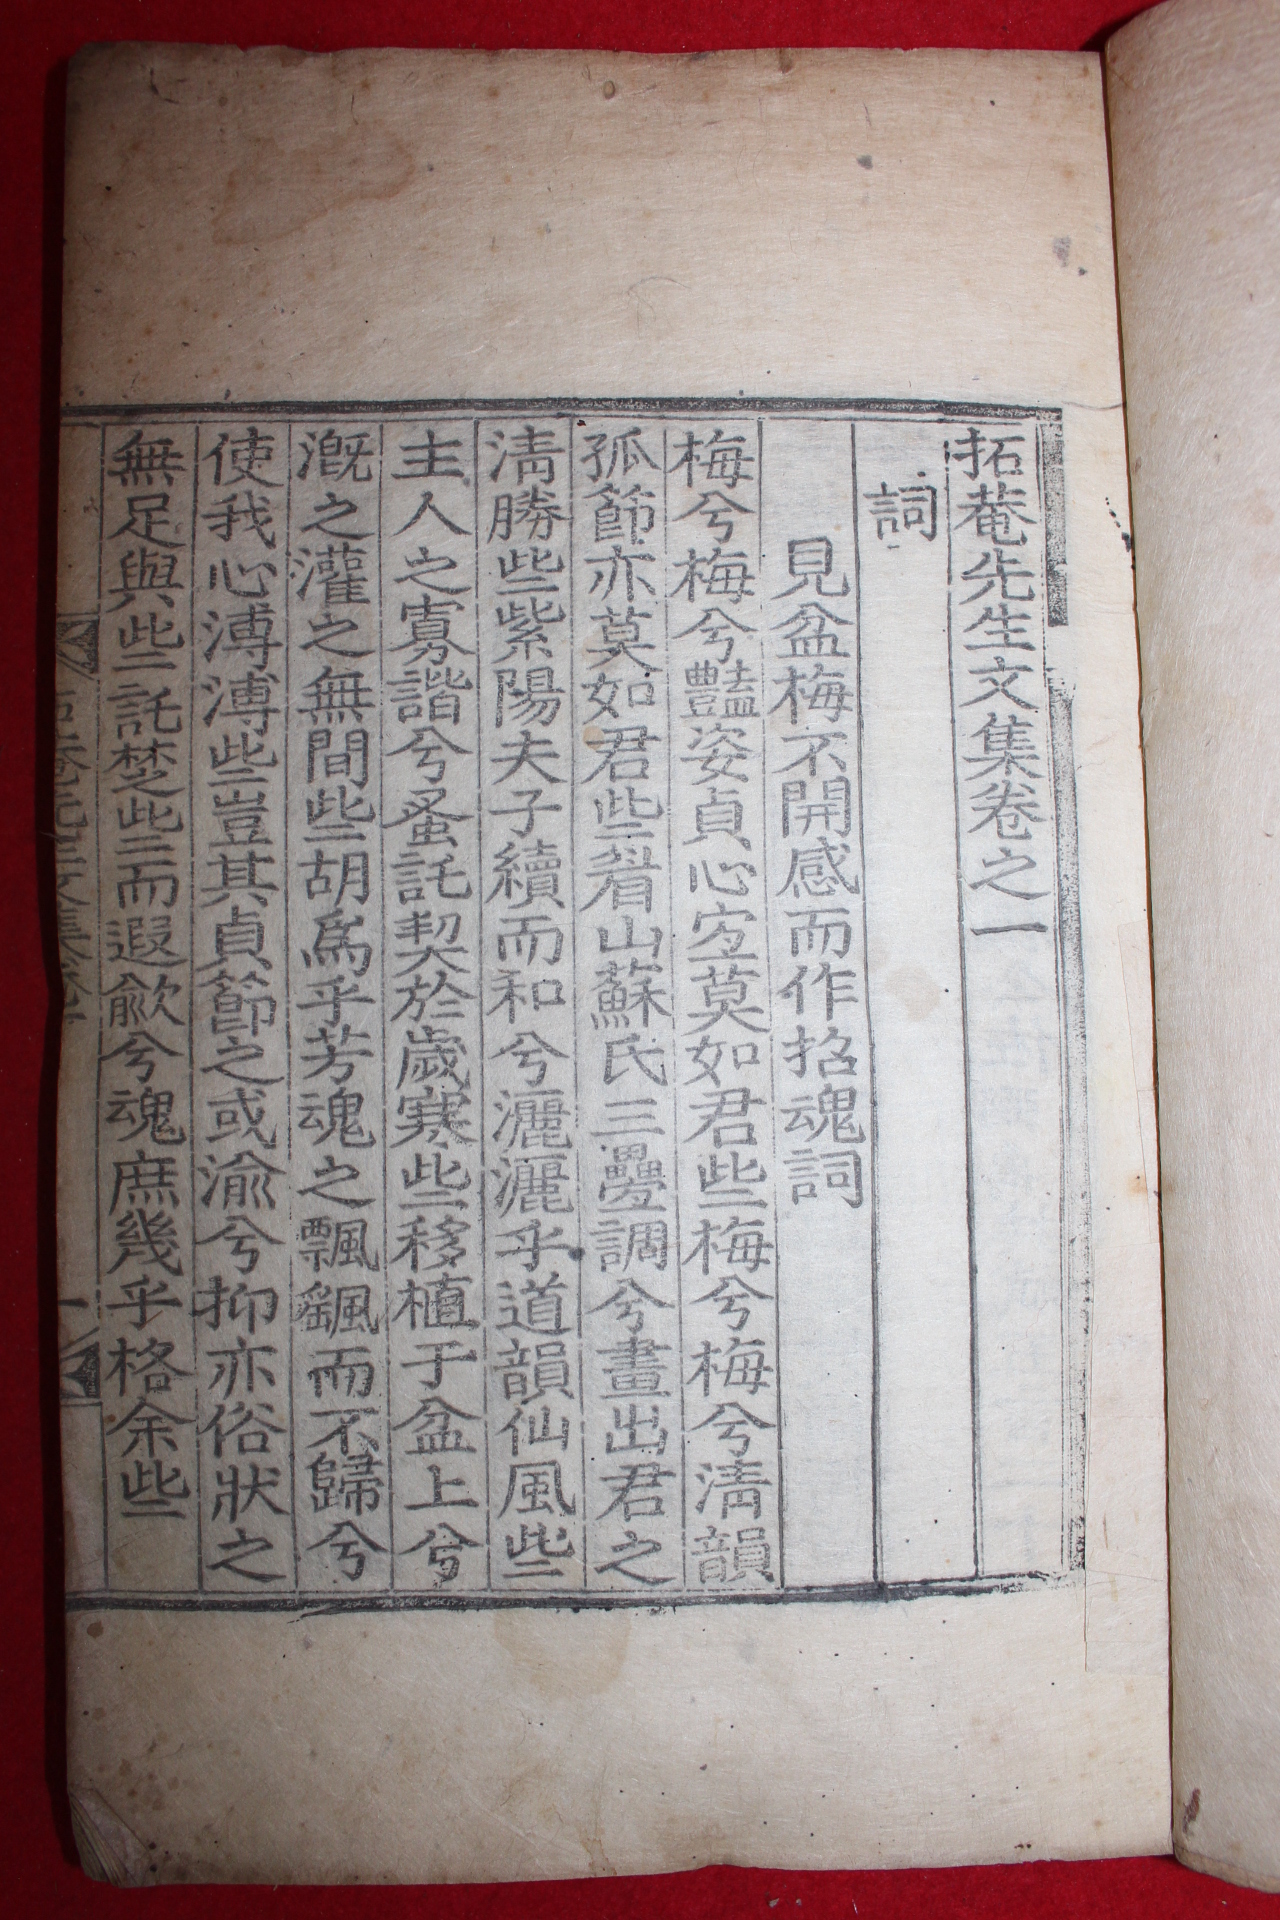 拓菴先生文集卷之一
詞
見盆梅不開感而作招魂詞
梅兮梅兮豔姿貞心宜莫如君些梅兮梅兮淸韻
孤節亦莫如君些眉山蘇氏三疊調兮畫出君之
淸勝些紫陽夫子續而和兮灑灑乎道韻仙風些
主人之寡諧兮蚤託契於歲寒些移植于盆上兮
漑之灌之無間些胡爲乎芳魂之飄颻而不歸兮
使我心溥溥些豈其貞節之或渝兮抑亦俗狀之
無足與些託楚些而遐歛兮魂庶幾乎格余些
拓菴先生文集卷一
一